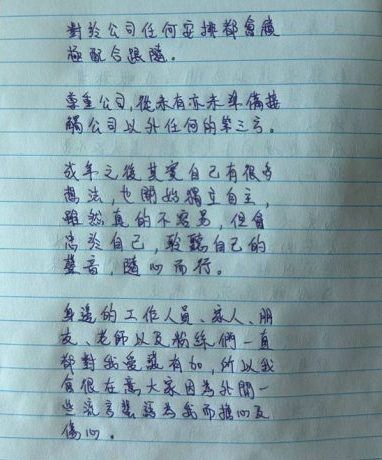 對於公司任何安排都會積
極配合跟隨。
尊重公司,從未有亦未準備接
觸公司以外任何的第三方。
成年之後其實自己有很多
想法,也開始獨立自主,
雖然真的不容易,但會
忠於自己,聆聽自己的
聲音,隨心而行。
身邊的工作人員、家人、朋
友、老師以及粉絲們一直
都對我愛護有加,所以我
會很在意大家因為外間一
些流言蜚語為我而擔心及
傷心。